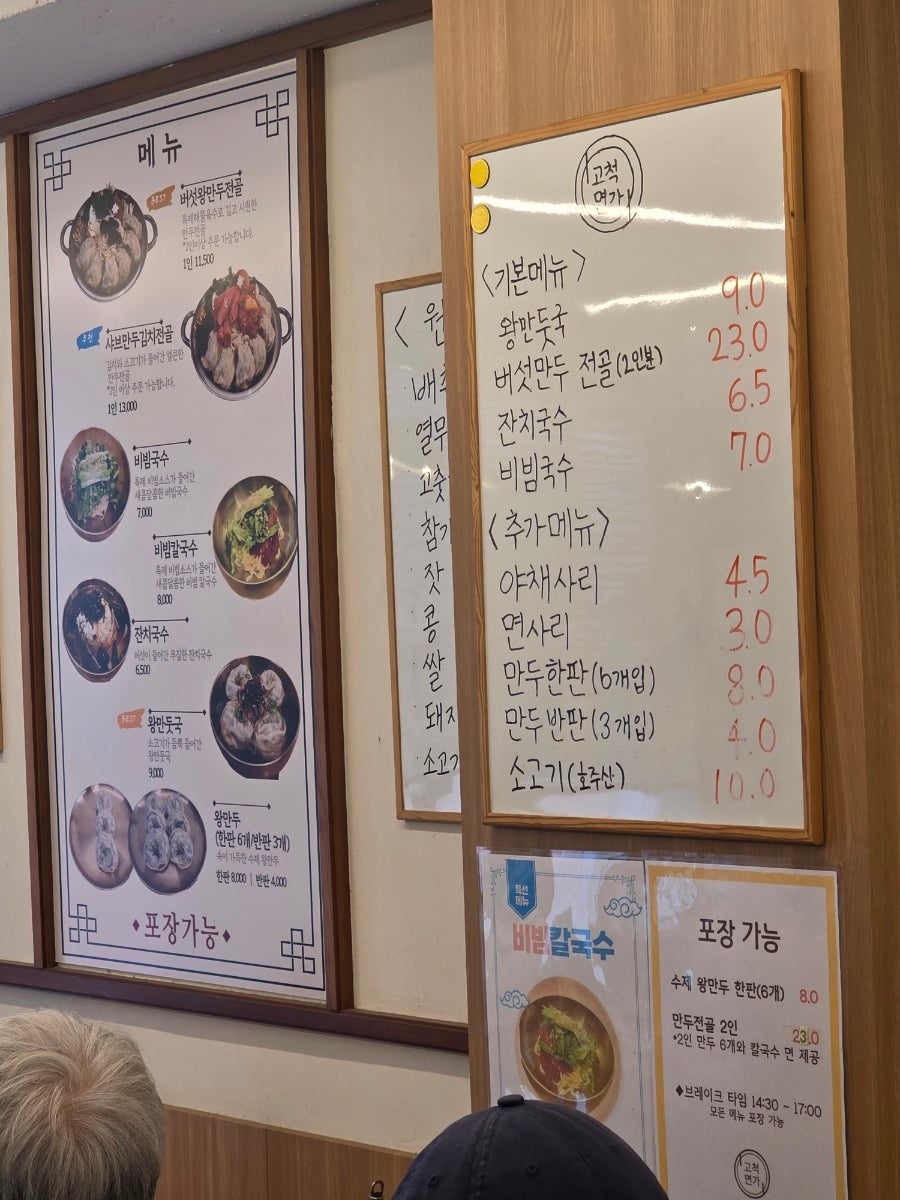 메뉴
BEST
버섯왕만두전골
특제해물육수로 깊고 시원한
만두전골
*2인이상 주문 가능합니다.
1인 11,500
추천
샤브만두김치전골
김치와 소고기가 들어간 얼큰한
만두전골
*2인 이상 주문 가능합니다.
1인 13,000
비빔국수
특제 비빔소스가 들어간
새콤달콤한 비빔국수
7,000
비빔칼국수
특제 비빔소스가 들어간
새콤달콤한 비빔 칼국수
8,000
잔치국수
버섯이 들어간 푸짐한 잔치국수
6,500
BEST
왕만둣국
소고기가 듬뿍 들어간
왕만둣국
9,000
왕만두
(한판 6개/반판 3개)
속이 가득찬 수제 왕만두
한판 8,000 | 반판 4,000
포장가능
<원
배추
열무
고춧
참기
잣
콩
쌀
돼지
소고기
고척
면가
<기본메뉴>
왕만둣국 9.0
버섯만두 전골(2인분) 23.0
잔치국수 6.5
비빔국수 7.0
<추가메뉴>
야채사리 4.5
면사리 3.0
만두한판(6개입) 8.0
만두반판(3개입) 4.0
소고기(호주산) 10.0
특선
메뉴
비빔칼국수
포장 가능
수제 왕만두 한판(6개) 8.0
만두전골 2인 23.0
*2인 만두 6개와 칼국수 면 제공
◆브레이크 타임 14:30 ~ 17:00
모든 메뉴 포장 가능
고척
면가